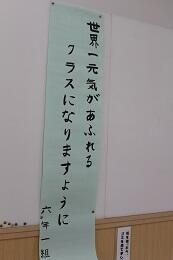 世界一元気があふれる
クラスになりますように
六年一組